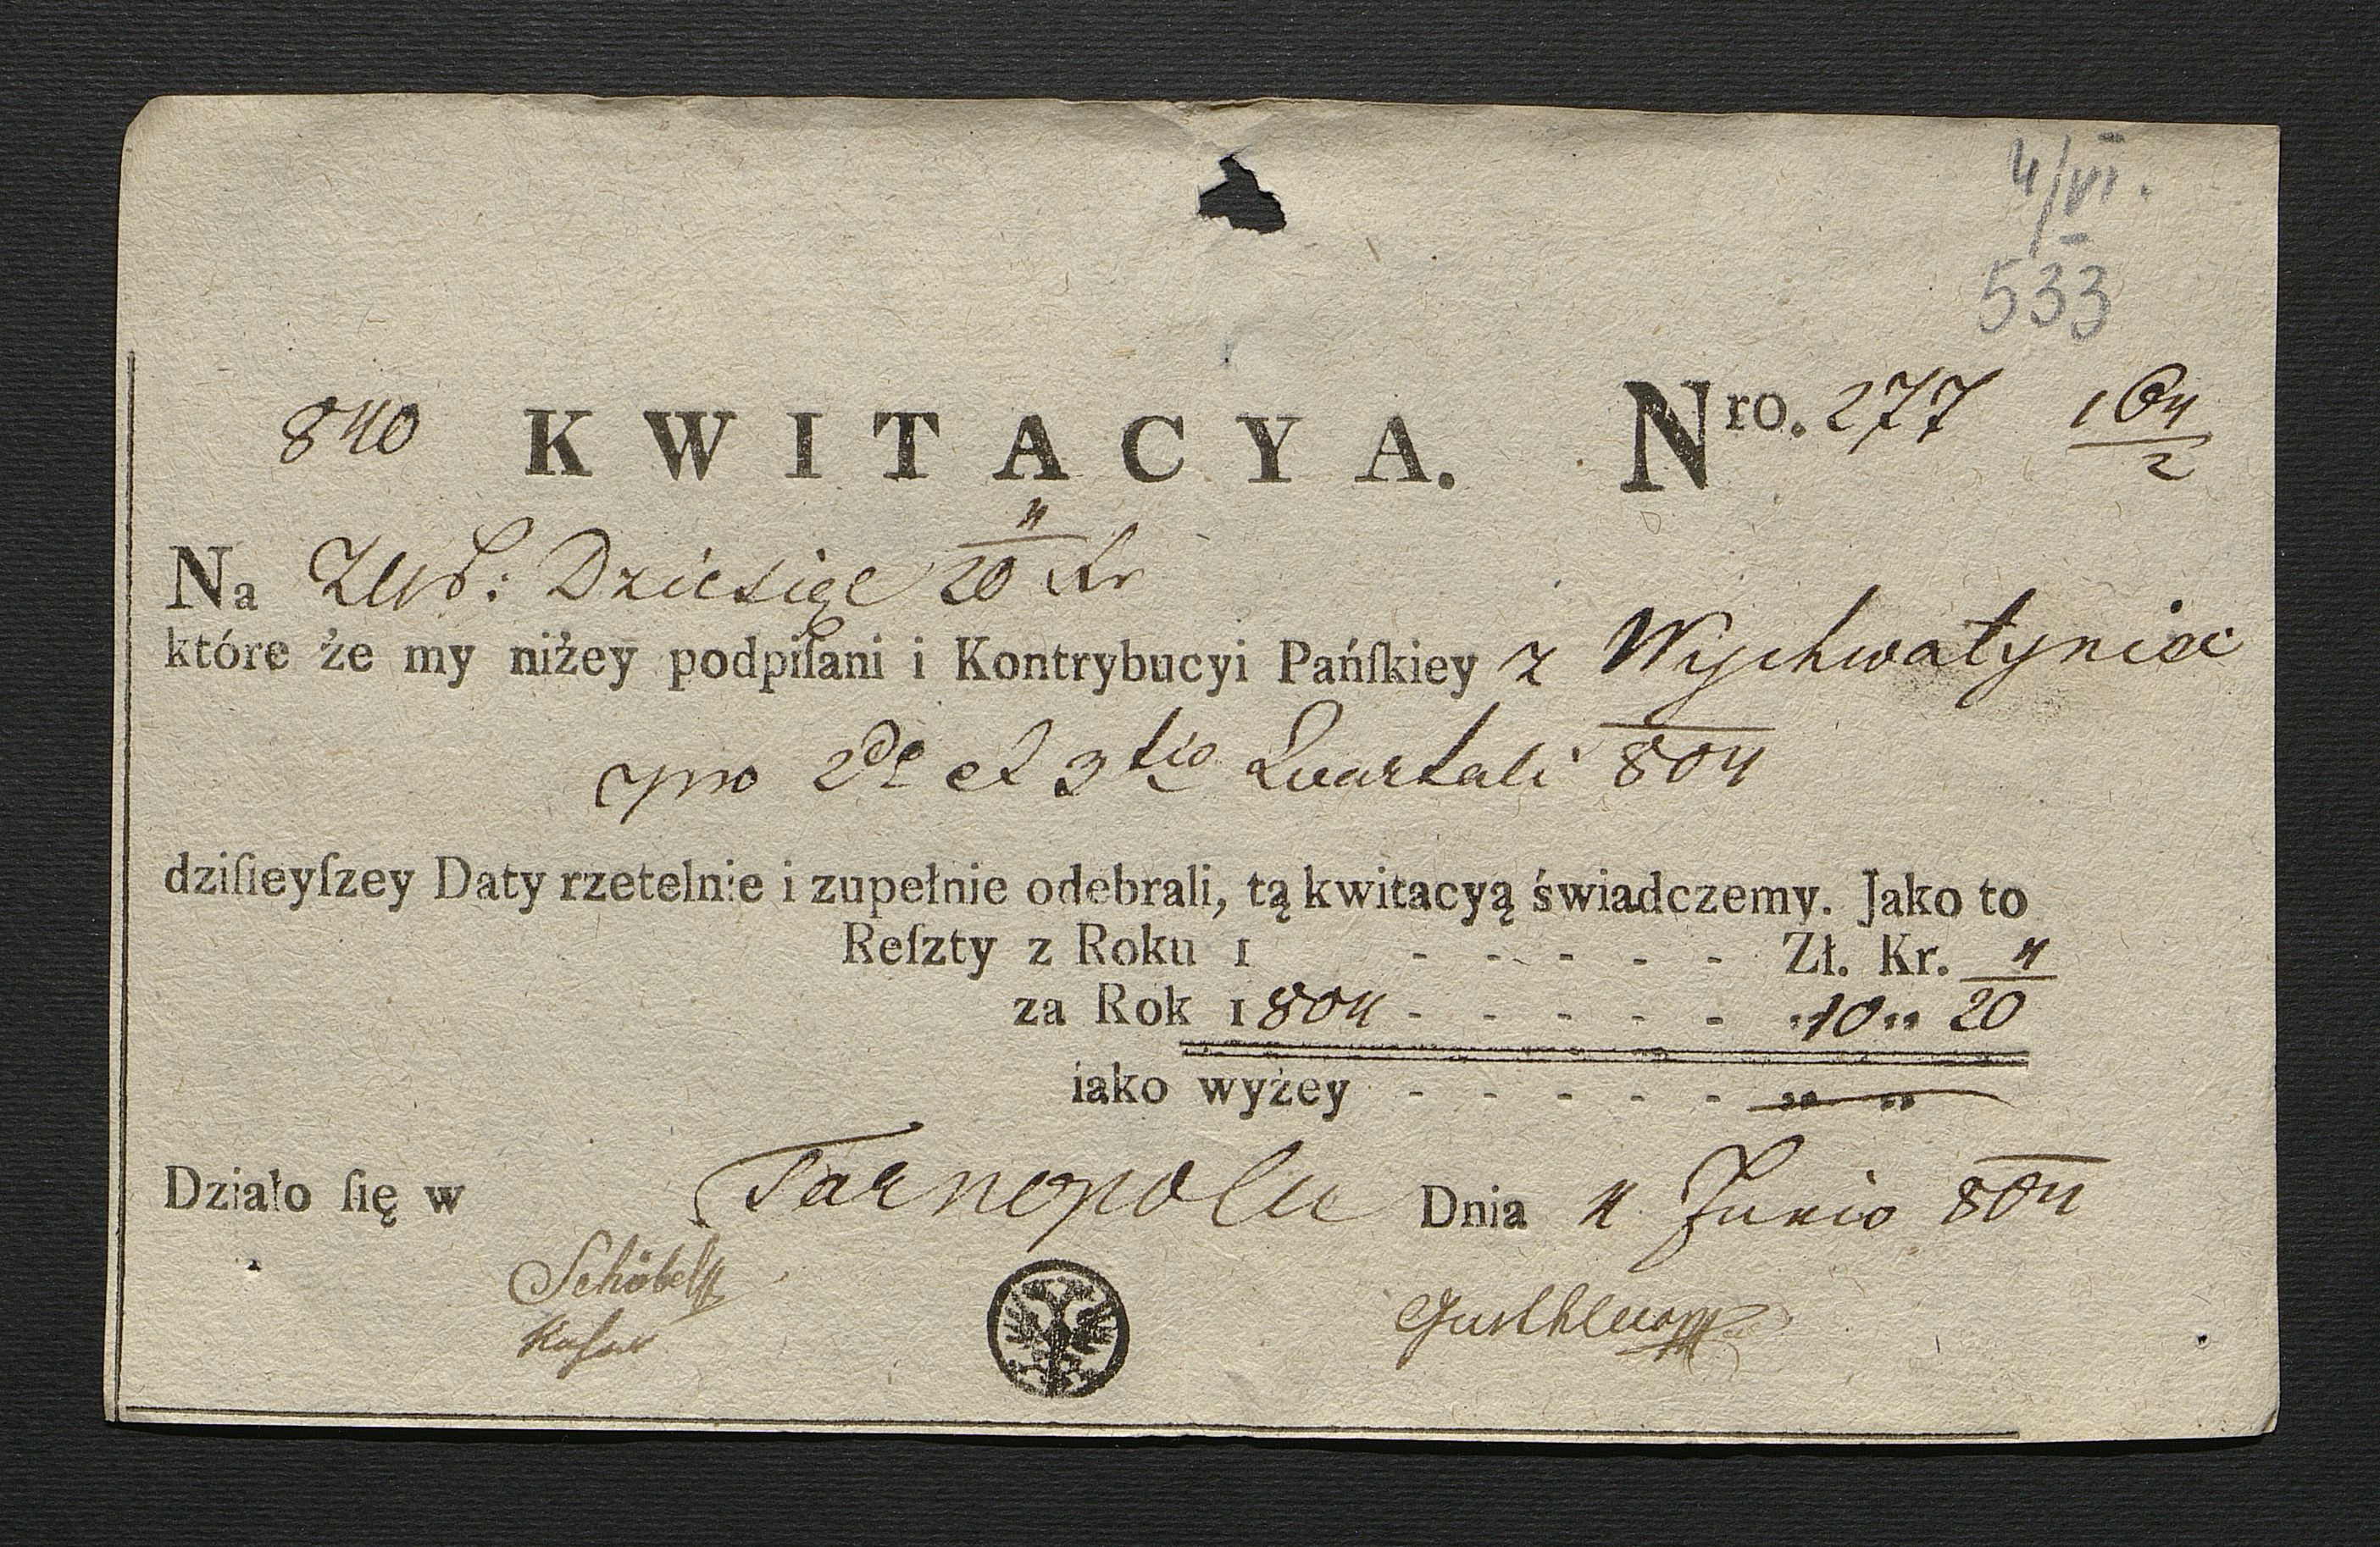 4/VI.
533
840 KWITACYA. Nro. 277 104/2
Na Dziesięć 4/20 Kr
które że my niżey podpiſani i Kontrybucyi Pańſkiey z Wychwatyniec
pro 2do et 3tio Quartali 804
dziſieyſzey Daty rzetelnie i zupełnie odebrali, tą kwitacyą świadczemy. Jako to
Reſzty z Roku 1 - - - - - Zł. Kr. 4
za Rok 1804 - - - - - „10„ 20
iako wyżey - - - - - „ „
Działo ſię w Tarnopolu Dnia 4 Junio 804
Schöbel